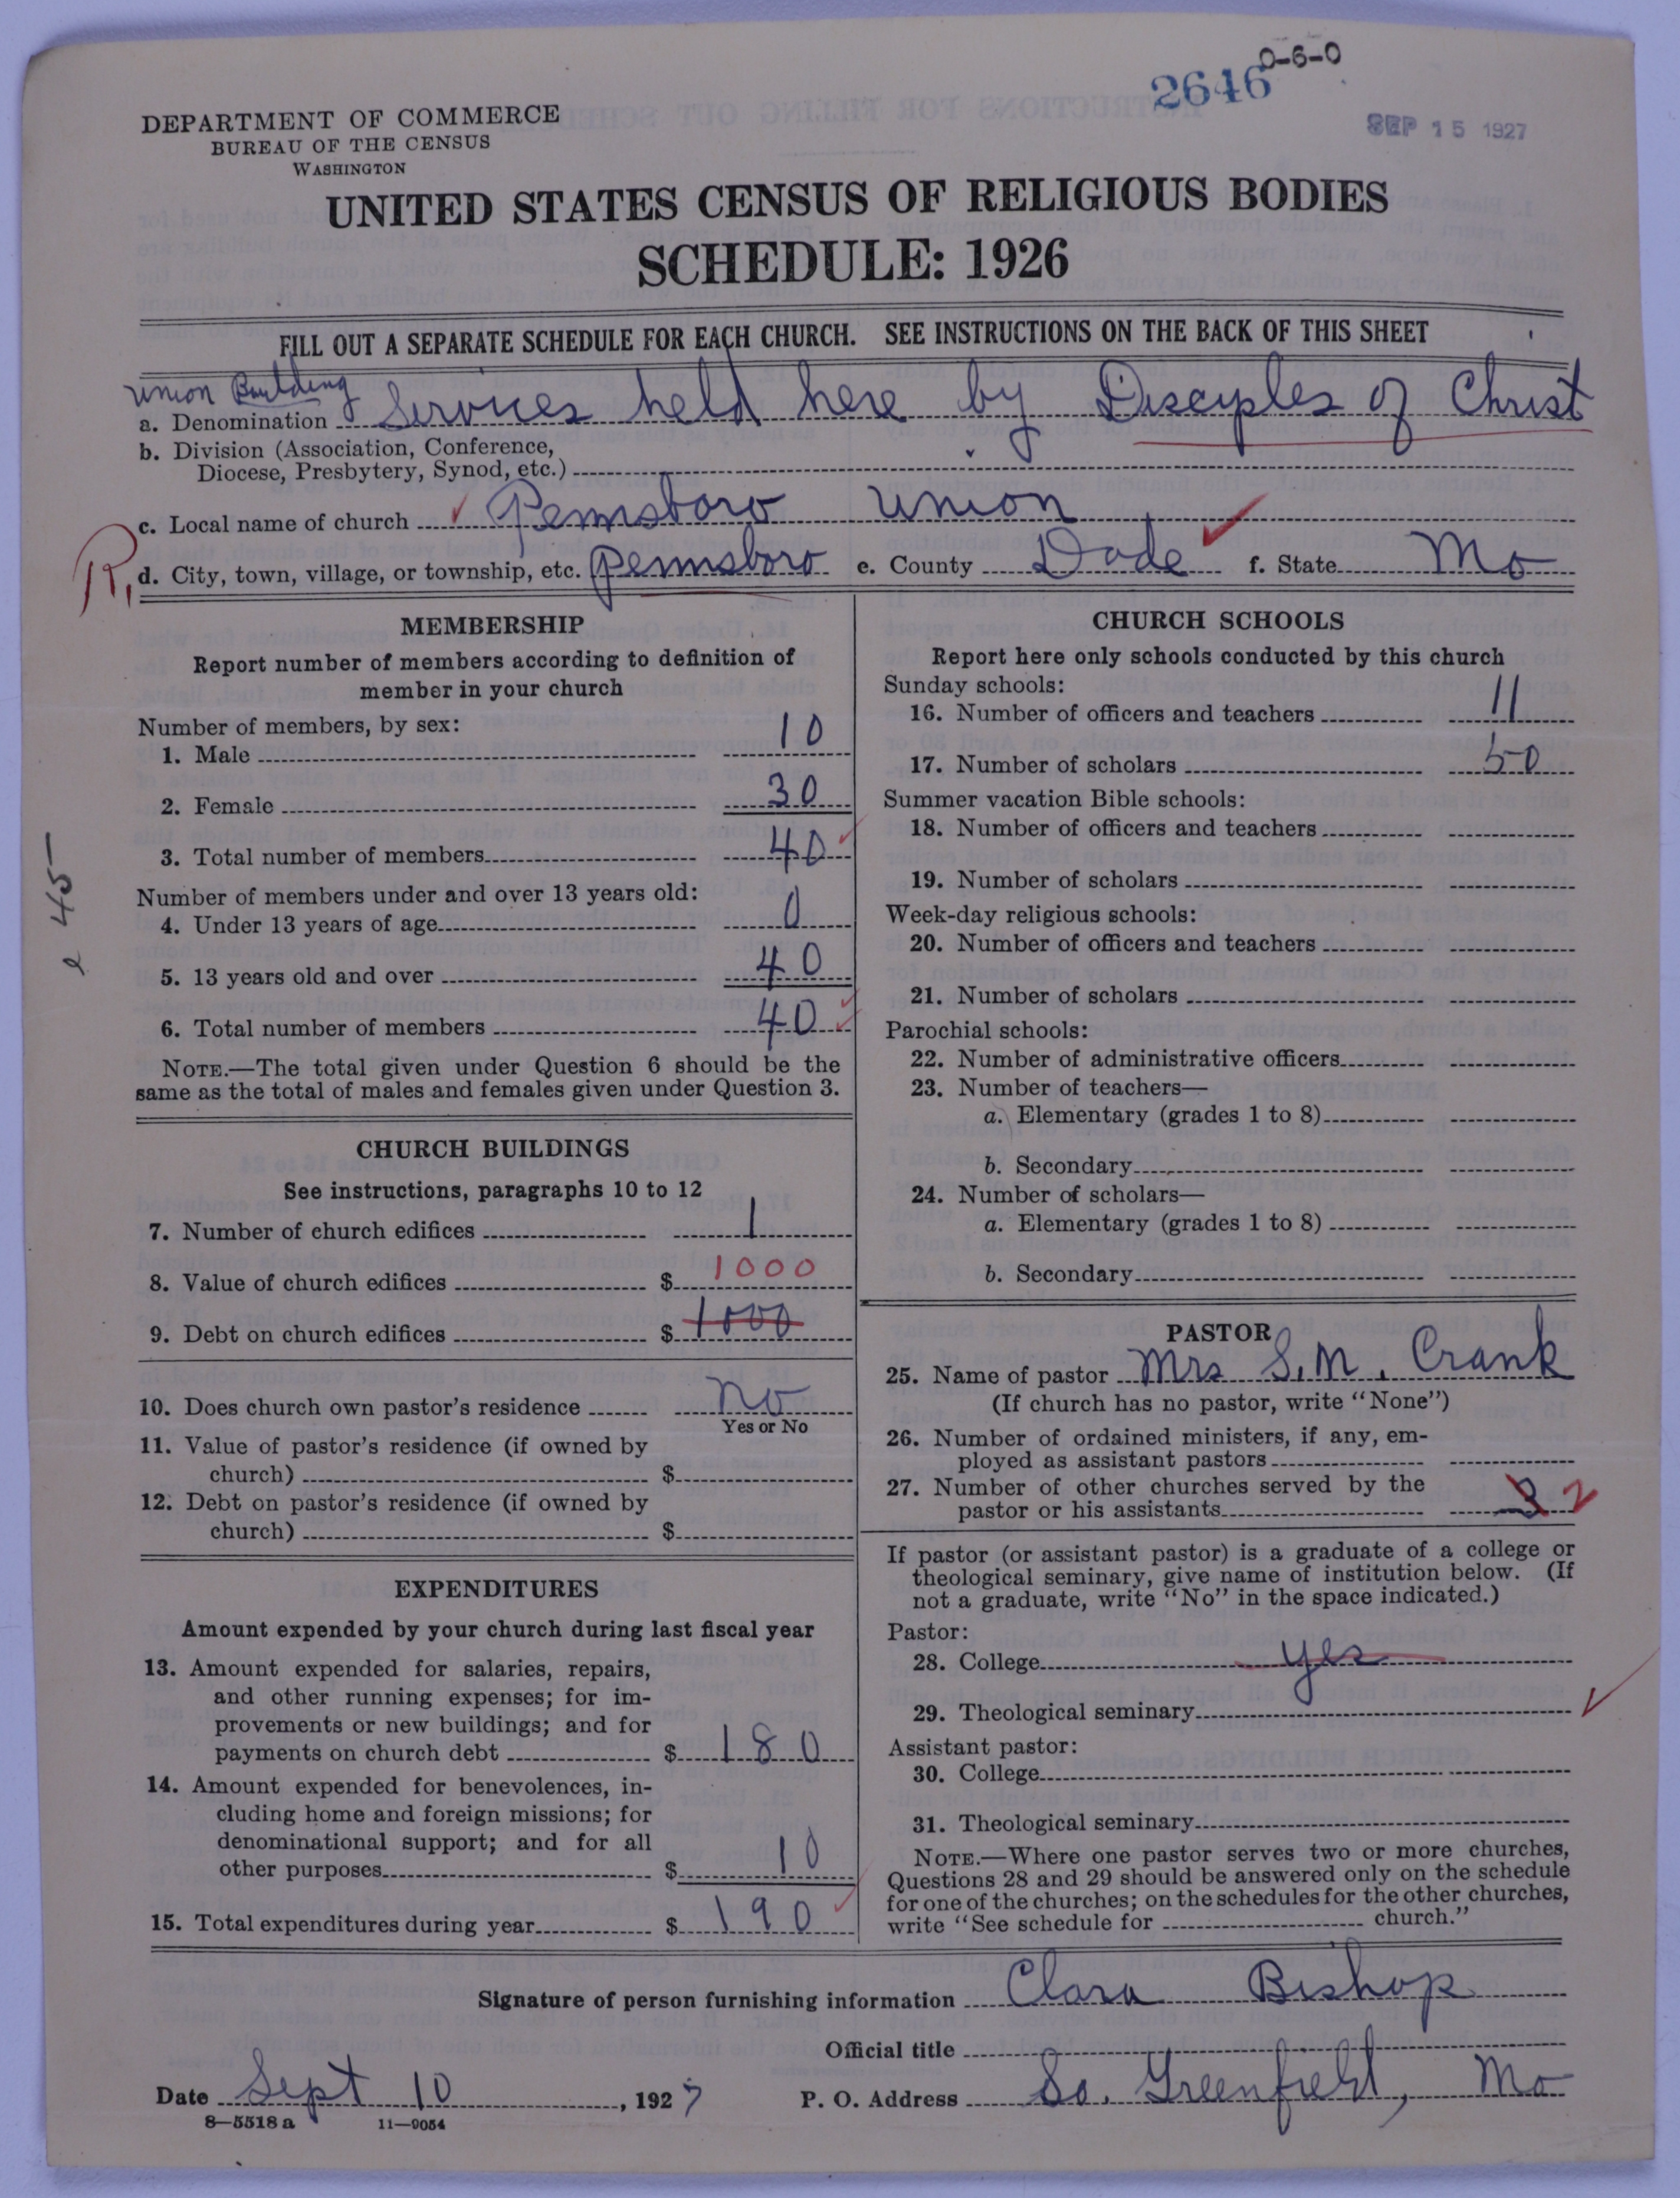 2646 0-6-0
SEP 15 1927
DEPARTMENT OF COMMERCE
BUREAU OF THE CENSUS
WASHINGTON
UNITED STATES CENSUS OF RELIGIOUS BODIES
SCHEDULE: 1926
FILL OUT A SEPARATE SCHEDULE FOR EACH CHURCH. SEE INSTRUCTIONS ON THE BACK OF THIS SHEET
Union Building
a. Denomination Services held here by Disciples of Christ
b. Division (Association, Conference,
Diocese, Presbytery, Synod, etc.)
c. Local name of church Pennsboro Union
R, d. City, town, village, or township, etc. Pennsboro e. County Dade f. State Mo
MEMBERSHIP
Report number of members according to definition of
member in your church
Number of members, by sex:
1. Male 10
2. Female 30
3. Total number of members 40
Number of members under and over 13 years old:
4. Under 13 years of age 0
5. 13 years old and over 40
6. Total number of members 40
NOTE.—The total given under Question 6 should be the
same as the total of males and females given under Question 3.
45
CHURCH BUILDINGS
See instructions, paragraphs 10 to 12
7. Number of church edifices 1
8. Value of church edifices $ 1000
9. Debt on church edifices $ 1000
10. Does church own pastor's residence no
Yes or No
11. Value of pastor's residence (if owned by
church) $
12. Debt on pastor's residence (if owned by
church) $
EXPENDITURES
Amount expended by your church during last fiscal year
13. Amount expended for salaries, repairs,
and other running expenses; for im-
provements or new buildings; and for
payments on church debt $ 180
14. Amount expended for benevolences, in-
cluding home and foreign missions; for
denominational support; and for all
other purposes $ 10
15. Total expenditures during year $ 190
CHURCH SCHOOLS
Report here only schools conducted by this church
Sunday schools:
16. Number of officers and teachers 11
17. Number of scholars 50
Summer vacation Bible schools:
18. Number of officers and teachers
19. Number of scholars
Week-day religious schools:
20. Number of officers and teachers
21. Number of scholars
Parochial schools:
22. Number of administrative officers
23. Number of teachers—
a. Elementary (grades 1 to 8)
b. Secondary
24. Number of scholars—
a. Elementary (grades 1 to 8)
b. Secondary
PASTOR
25. Name of pastor Mrs S. M. Crank
(If church has no pastor, write "None")
26. Number of ordained ministers, if any, em-
ployed as assistant pastors
27. Number of other churches served by the
pastor or his assistants 3 2
If pastor (or assistant pastor) is a graduate of a college or
theological seminary, give name of institution below. (If
not a graduate, write "No" in the space indicated.)
Pastor:
28. College yes
29. Theological seminary
Assistant pastor:
30. College
31. Theological seminary
NOTE.—Where one pastor serves two or more churches,
Questions 28 and 29 should be answered only on the schedule
for one of the churches; on the schedules for the other churches,
write "See schedule for church."
Signature of person furnishing information Clara Bishop
Official title
Date Sept 10, 1927 P. O. Address So. Greenfield, Mo
8—5518 a 11—9054